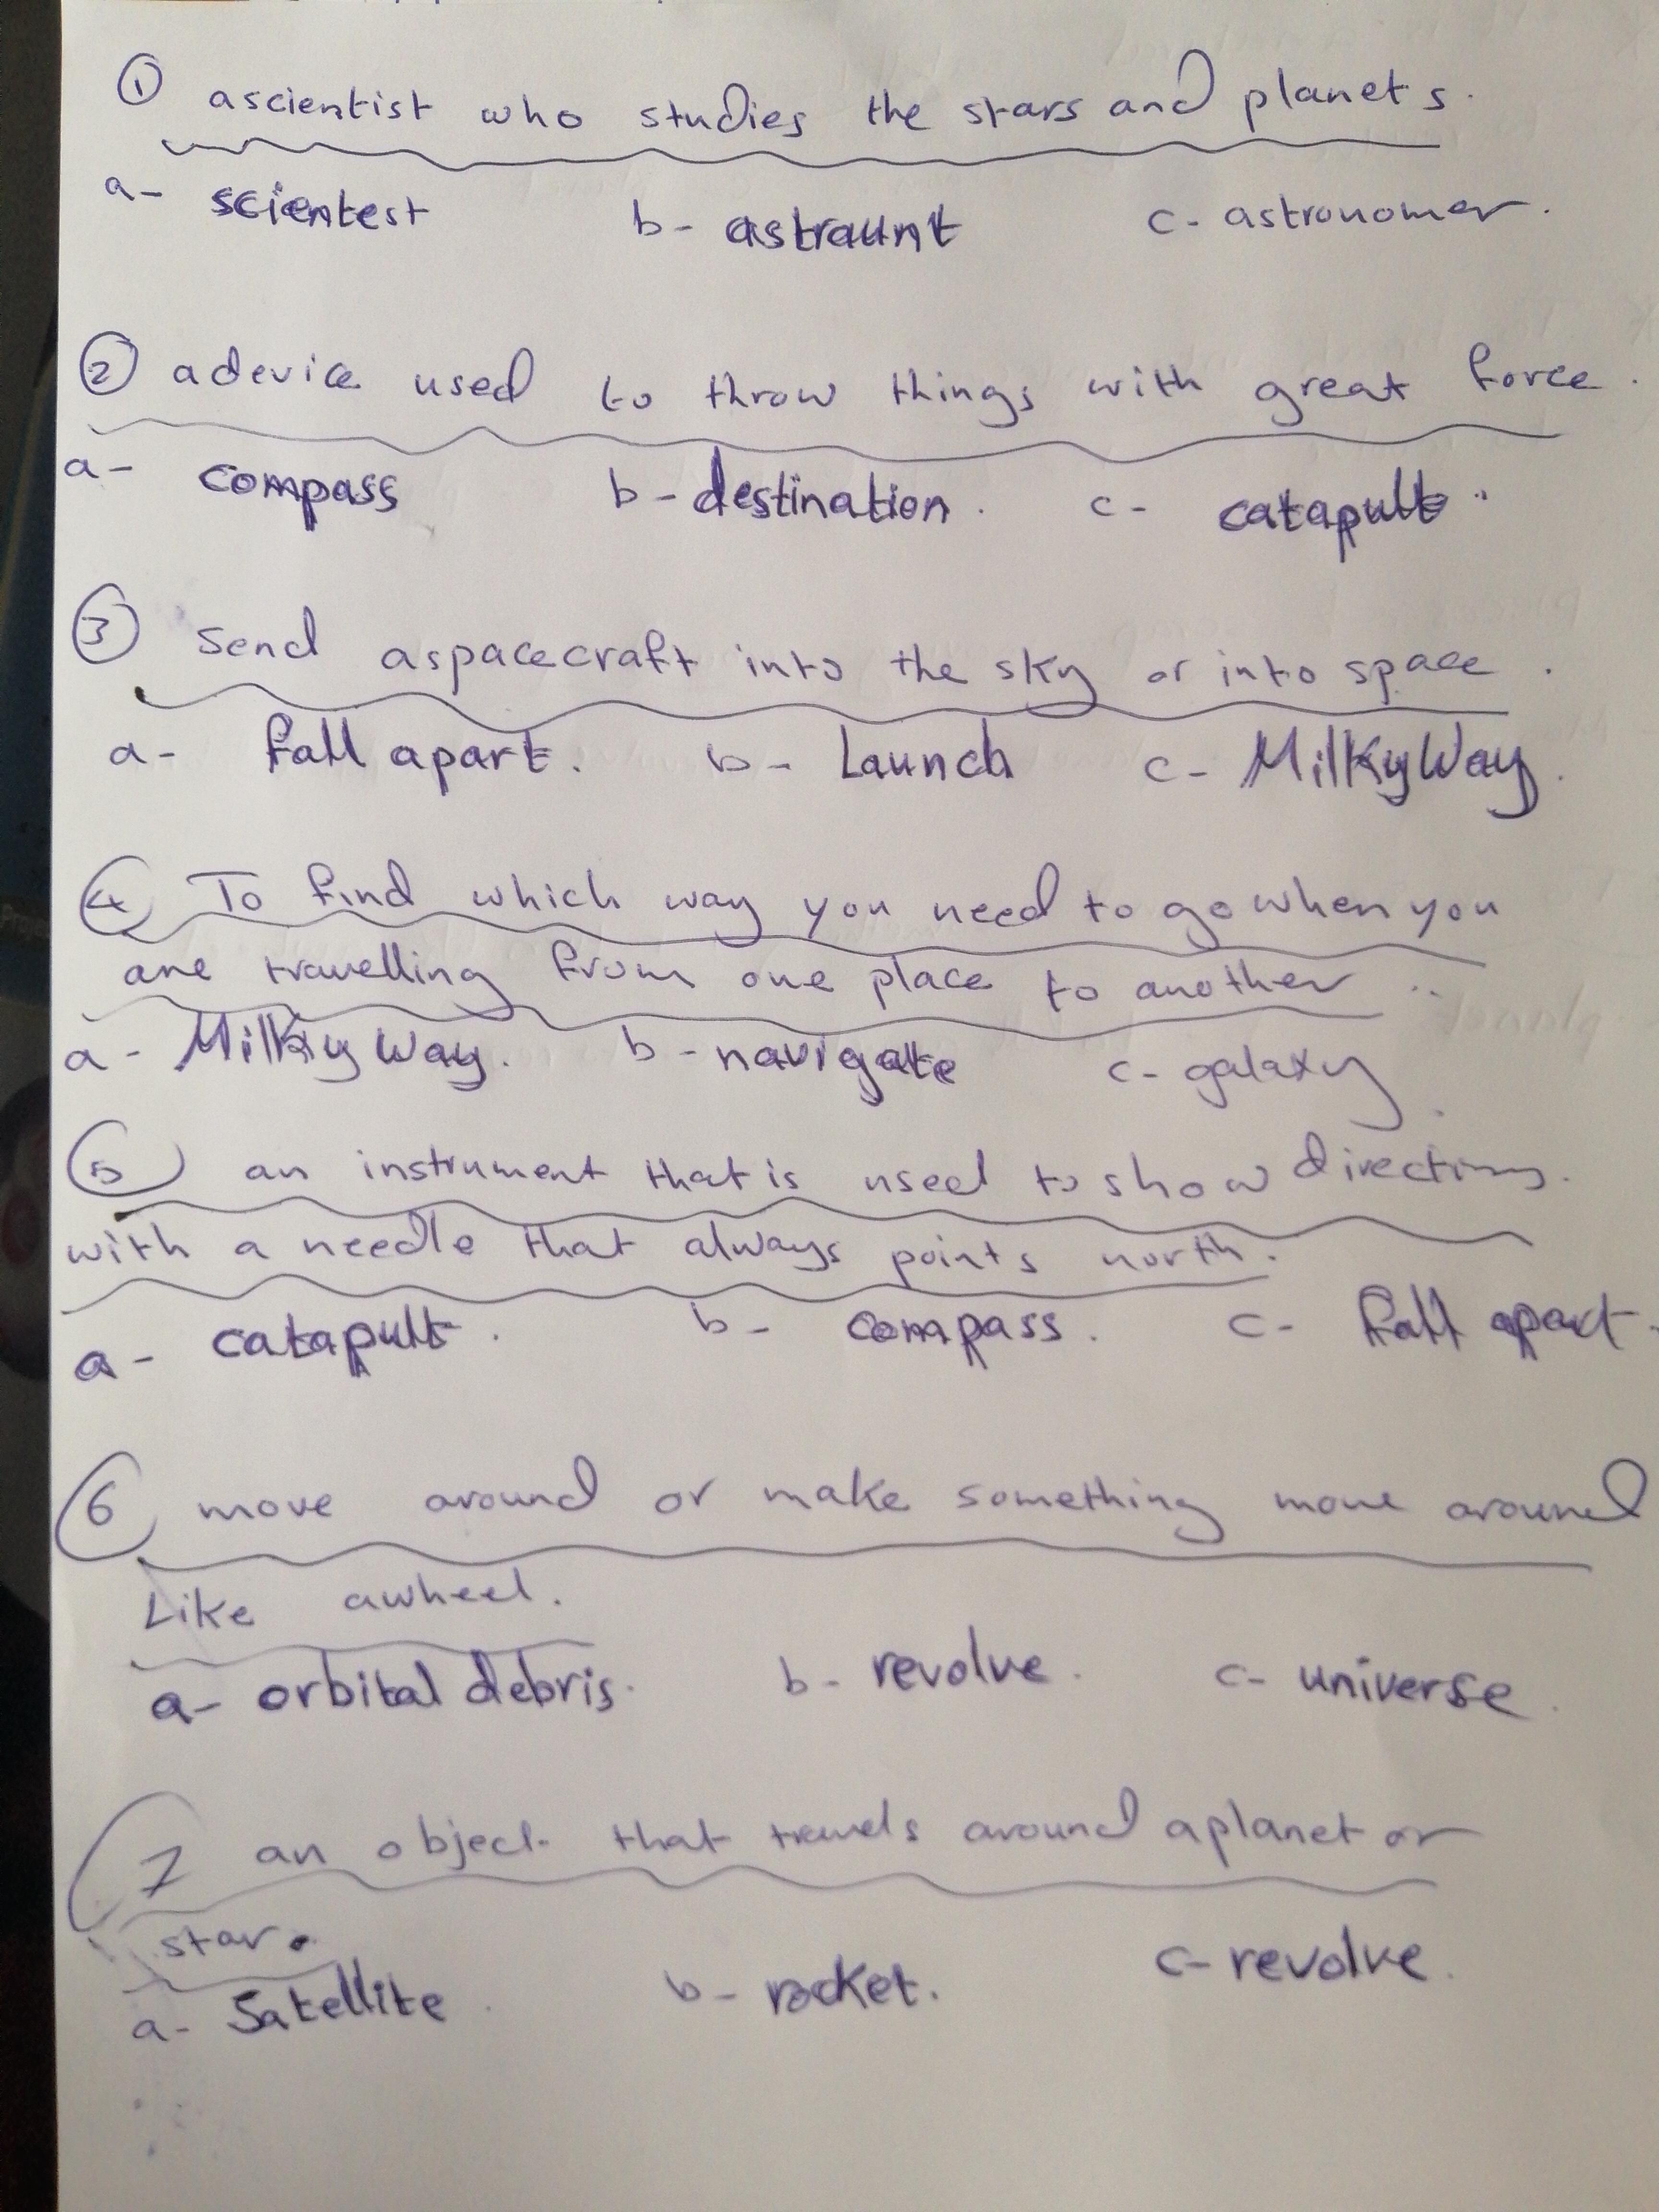 ① ascientist who studies the stars and planets.
a- scientest b- astraunt c- astronomer.
② adevice used to throw things with great force.
a- compass b- destination. c- catapult.
③ send aspacecraft into the sky or into space.
a- fall apart. b- Launch c- MilkyWay.
④ To find which way you need to go when you
are travelling from one place to another ..
a- Milky Way. b- navigate c- galaxy.
⑤ an instrument that is used to show directions.
with a needle that always points north.
a- catapult. b- compass. c- fall apart.
⑥ move around or make something move around
Like awheel.
a- orbital debris. b- revolve. c- universe.
7 an object that travels around aplanet or
star.
a- Satellite. b- rocket. c- revolve.